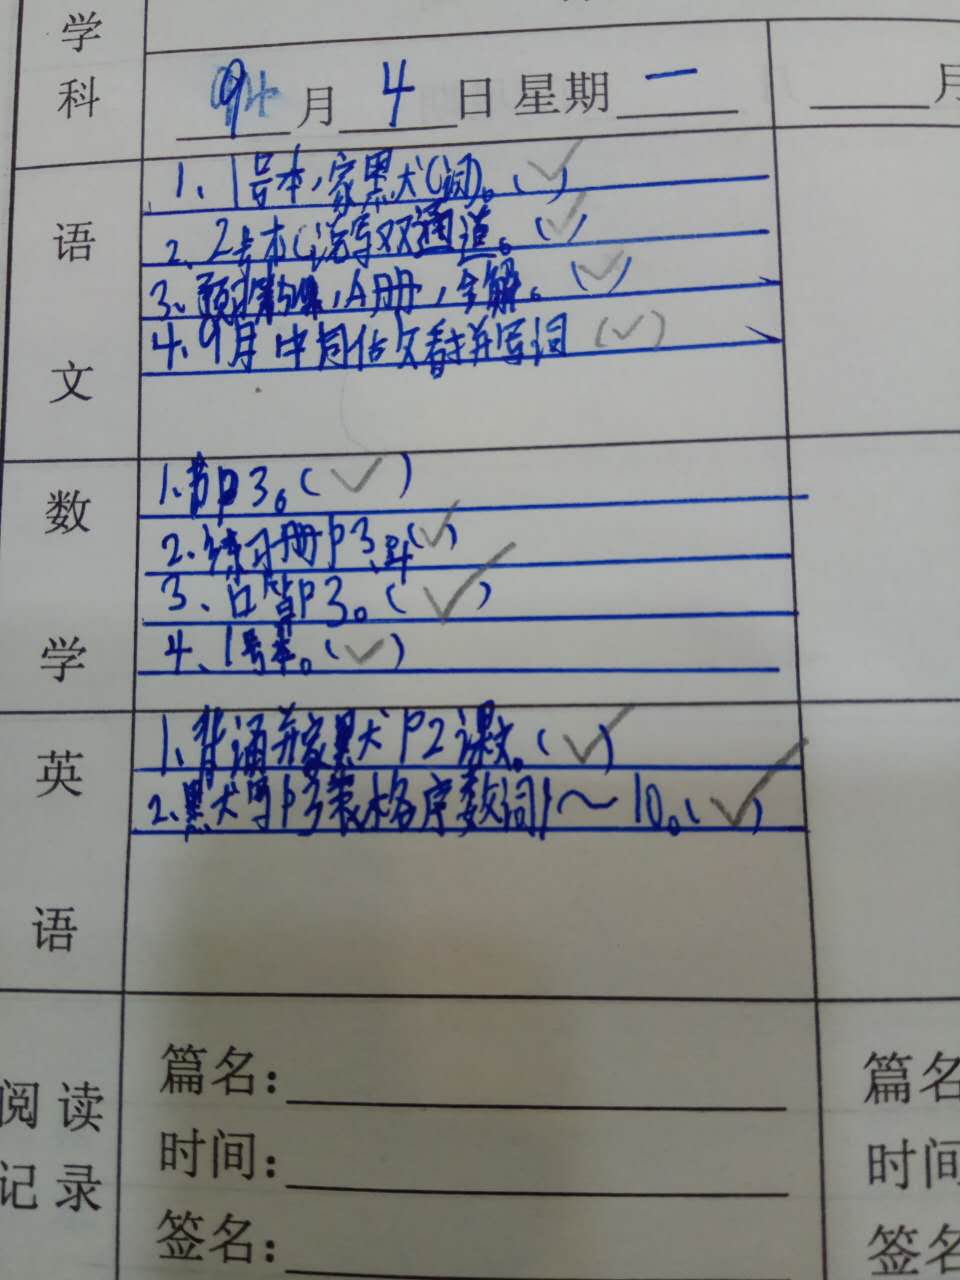 学
科
9月4日星期一
月
语
文
1、1号本,家默(词)。(✓)
2、2号本(读写双通道。(✓)
3、预习新课,A册,全解。(✓)
4、9月中 看并写词(✓)
数
学
1、书P3。(✓)
2、练习册P3、4(✓)
3、口算P3。(✓)
4、1号本。(✓)
英
语
1、背诵并家默P2课文。(✓)
2、默写P3表格序数词1~10。(✓)
阅读
记录
篇名:
篇名
时间:
时间
签名:
签名